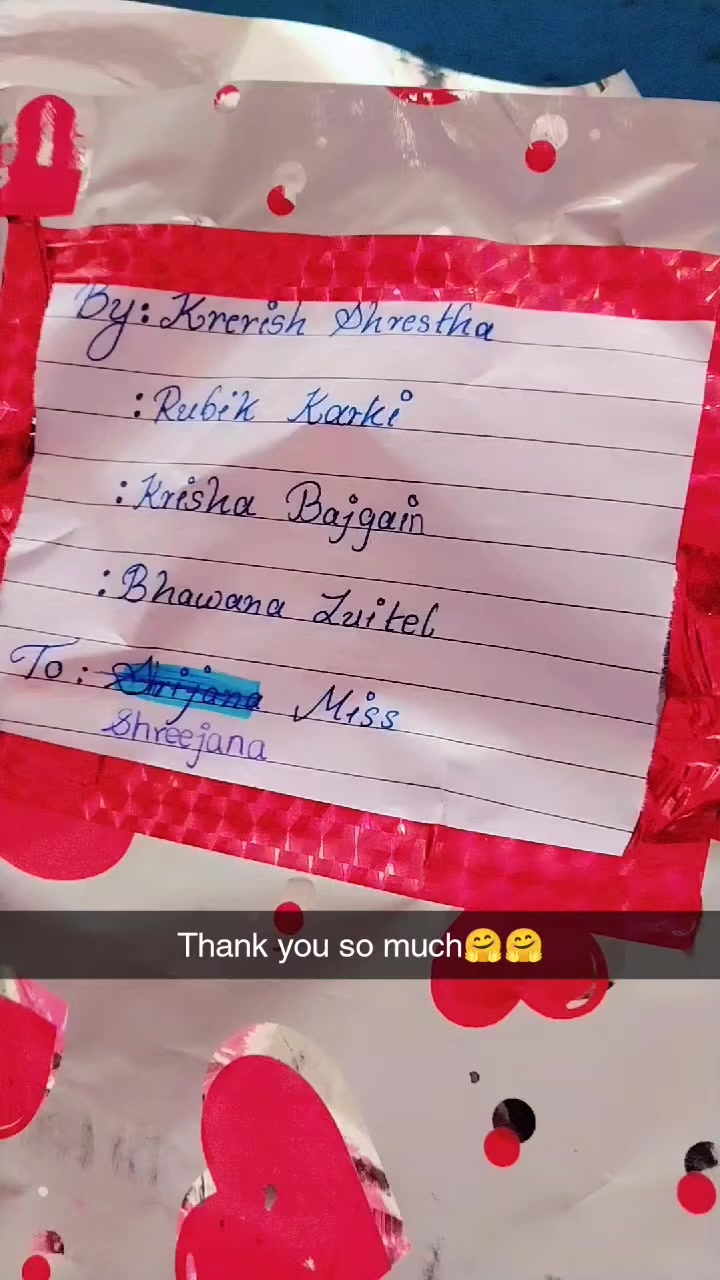 By: Krerish Shrestha
: Rubik Karki
: Krisha Bajgain
: Bhawana Luitel
To: Shrijana Miss
Shreejana
Thank you so much🤗🤗